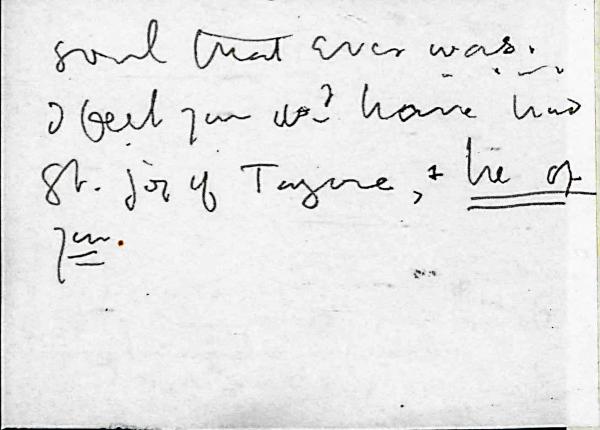 soul that ever was.
I feel you wd. have had
gt. joy of Tagore, & he of
you.